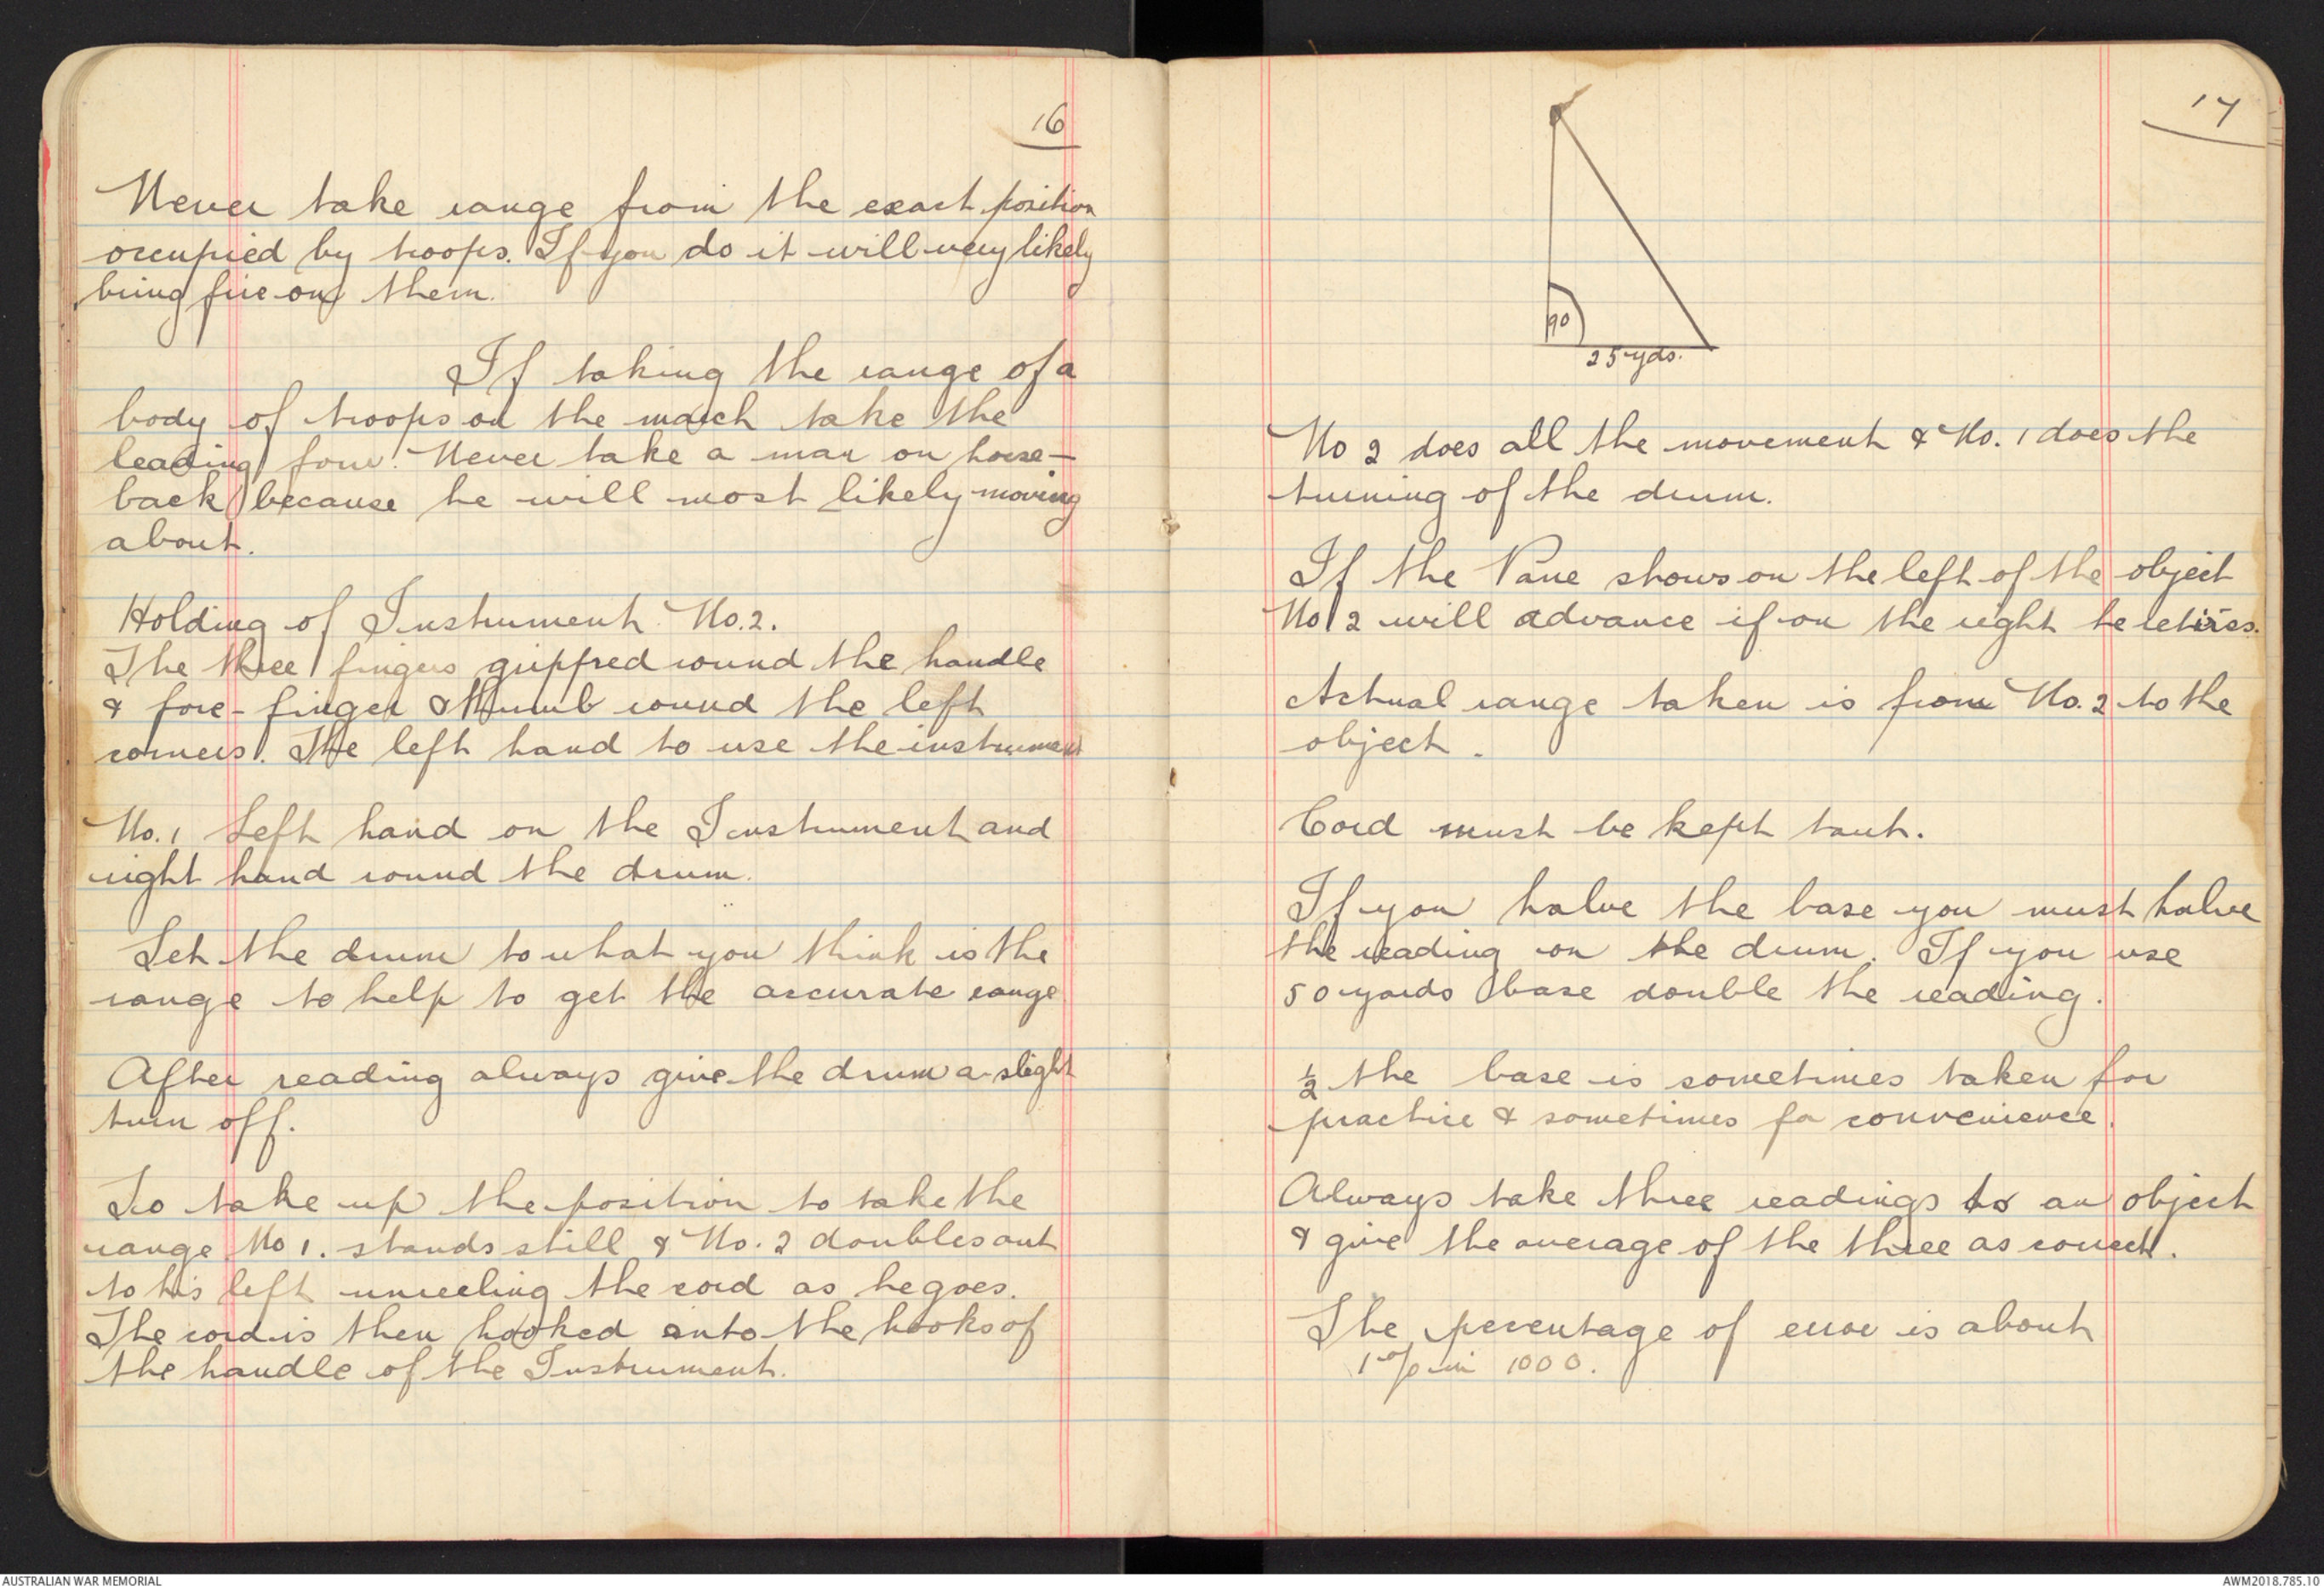 16
Never take range from the exact position
occupied by troops. If you do it will very likely
bring fire on them.
If taking the range of a
body of troops on the march take the
leading four. Never take a man on horse-
back because he will most likely moving
about.
Holding of Instrument No. 2.
The three fingers gripped round the handle
& fore-finger & thumb round the left
corners. The left hand to use the instrument
No. 1 Left hand on the Instrument and
right hand round the drum.
Set the drum to what you think is the
range to help to get the accurate range
After reading always give the drum a slight
turn off.
To take up the position to take the
range No 1. stands still & No. 2 doubles out
to his left unreeling the cord as he goes.
The cord is then hooked onto the hooks of
the handle of the Instrument.
17
90
25 yds.
No 2 does all the movement & No. 1 does the
turning of the drum.
If the Vane shows on the left of the object
No 2 will advance if on the right he retires.
Actual range taken is from No. 2 to the
object.
Cord must be kept taut.
If you halve the base you must halve
the reading on the drum. If you use
50 yards base double the reading.
½ the base is sometimes taken for
practice & sometimes fo convenience.
Always take three readings to an object
& give the average of the three as correct.
The percentage of error is about
1 % in 1000.
AUSTRALIAN WAR MEMORIAL
AWM2018.785.10